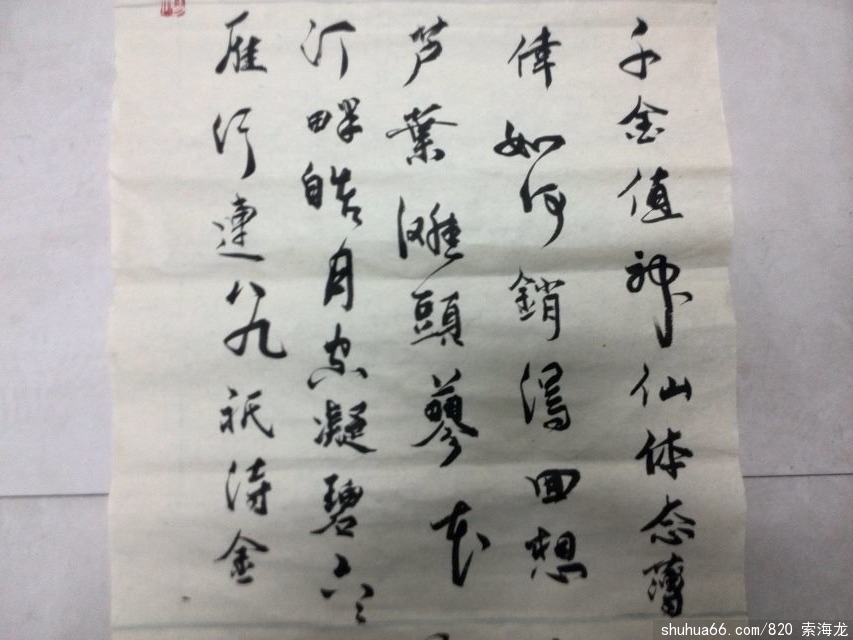 千金值神仙体态薄
偉如何銷得回想
芦葉灘頭蓼花
汀畔皓月空凝碧六々
雁行連八九祇待金
shuhua66.com/820 索海龙